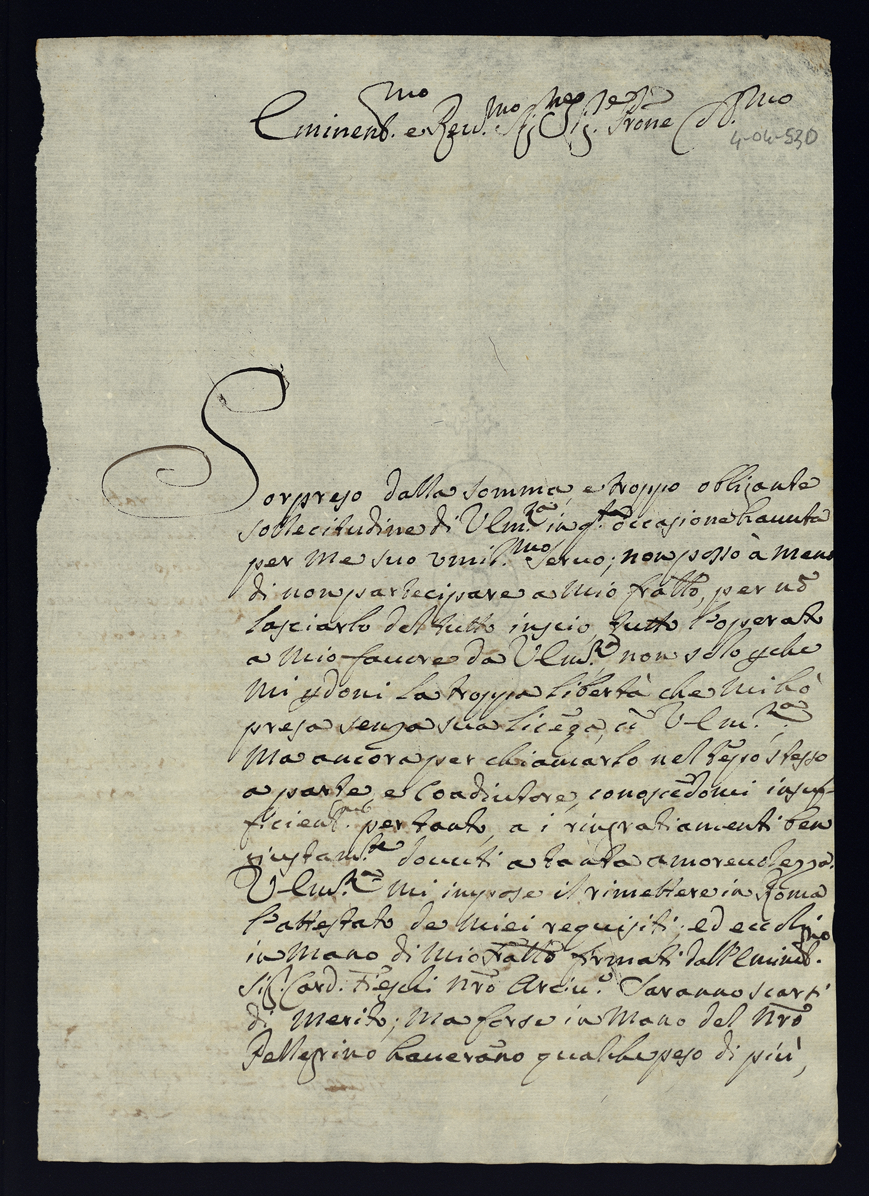 Eminent.mo e Reu.mo Sig.re Sig.re Prone
4-04-530
Sorpreso dalla somma, e troppo obligante
sollecitudine di V Em.za in q.ta occasione hauuta
per me suo umil.mo seruo; non posso à meno
di non partecipare a mio fratto, per nō
lasciarlo del tutto inscio tutto l'operato
a mio fauore da V Em.za non solo pche
mi pdoni la troppa libertà che mi hò
presa senza sua licēza, cū V Em.za
Ma ancora per chiamarlo nel tēpo stesso
a parte, e Coadiutore, conoscēdomi insuf-
ficient.mo per tanto, a i ringratiamenti ben
giustam.te douuti a tanta amoreuolezza.
V Em.za mi impose il rimettere in Roma
l'attestato de miei requisiti; ed eccoli
in mano di mio Fratto firmati dall'Eminēt.mo
Sig. Card. Fieschi Nrō Arciu.o Saranno scarsi
di merito; ma forse in mano del Nrō
Pellegrino haueranno qualche peso di più,